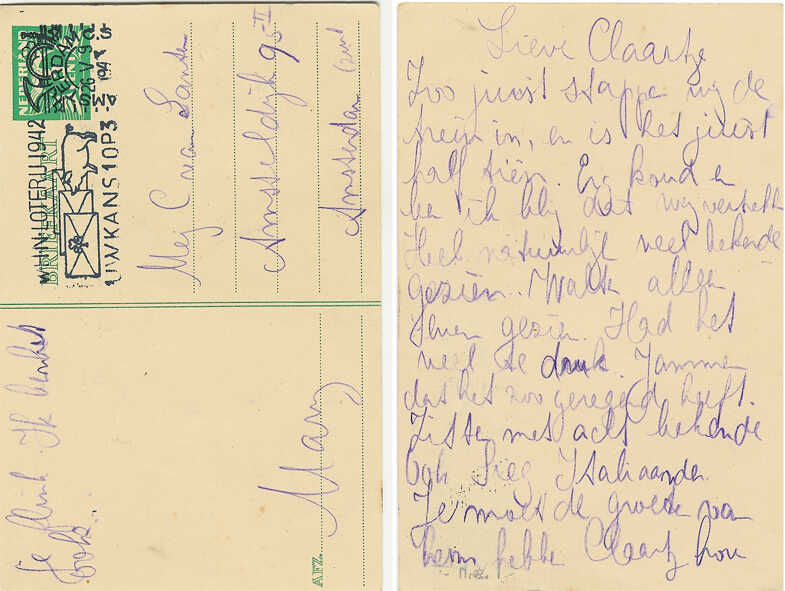 NEDERLAND
AMSTERDAM C.S.
26 V 9
194
WIN LOTERIJ 1942
UW KANS 10 P3
BRIEFKAART
Mej C van Santen
Amsteldijk 95 II
Amsterdam Zuid
je flink Ik
ook.
Mary
AFZ.
Lieve Claartje
Zoo juist stappen wij de
trein in, en is het juist
half tien. Erg koud en
ben ik blij dat wij vertrekken
Heel natuurlijk veel bekende
gezien. Walter alleen
even gezien. Had het
veel te druk. Jammer
dat het zoo geregend heeft.
Zitten met acht bekende
Ook Sieg
Je moet de groeten van
hem hebben Claartje hou